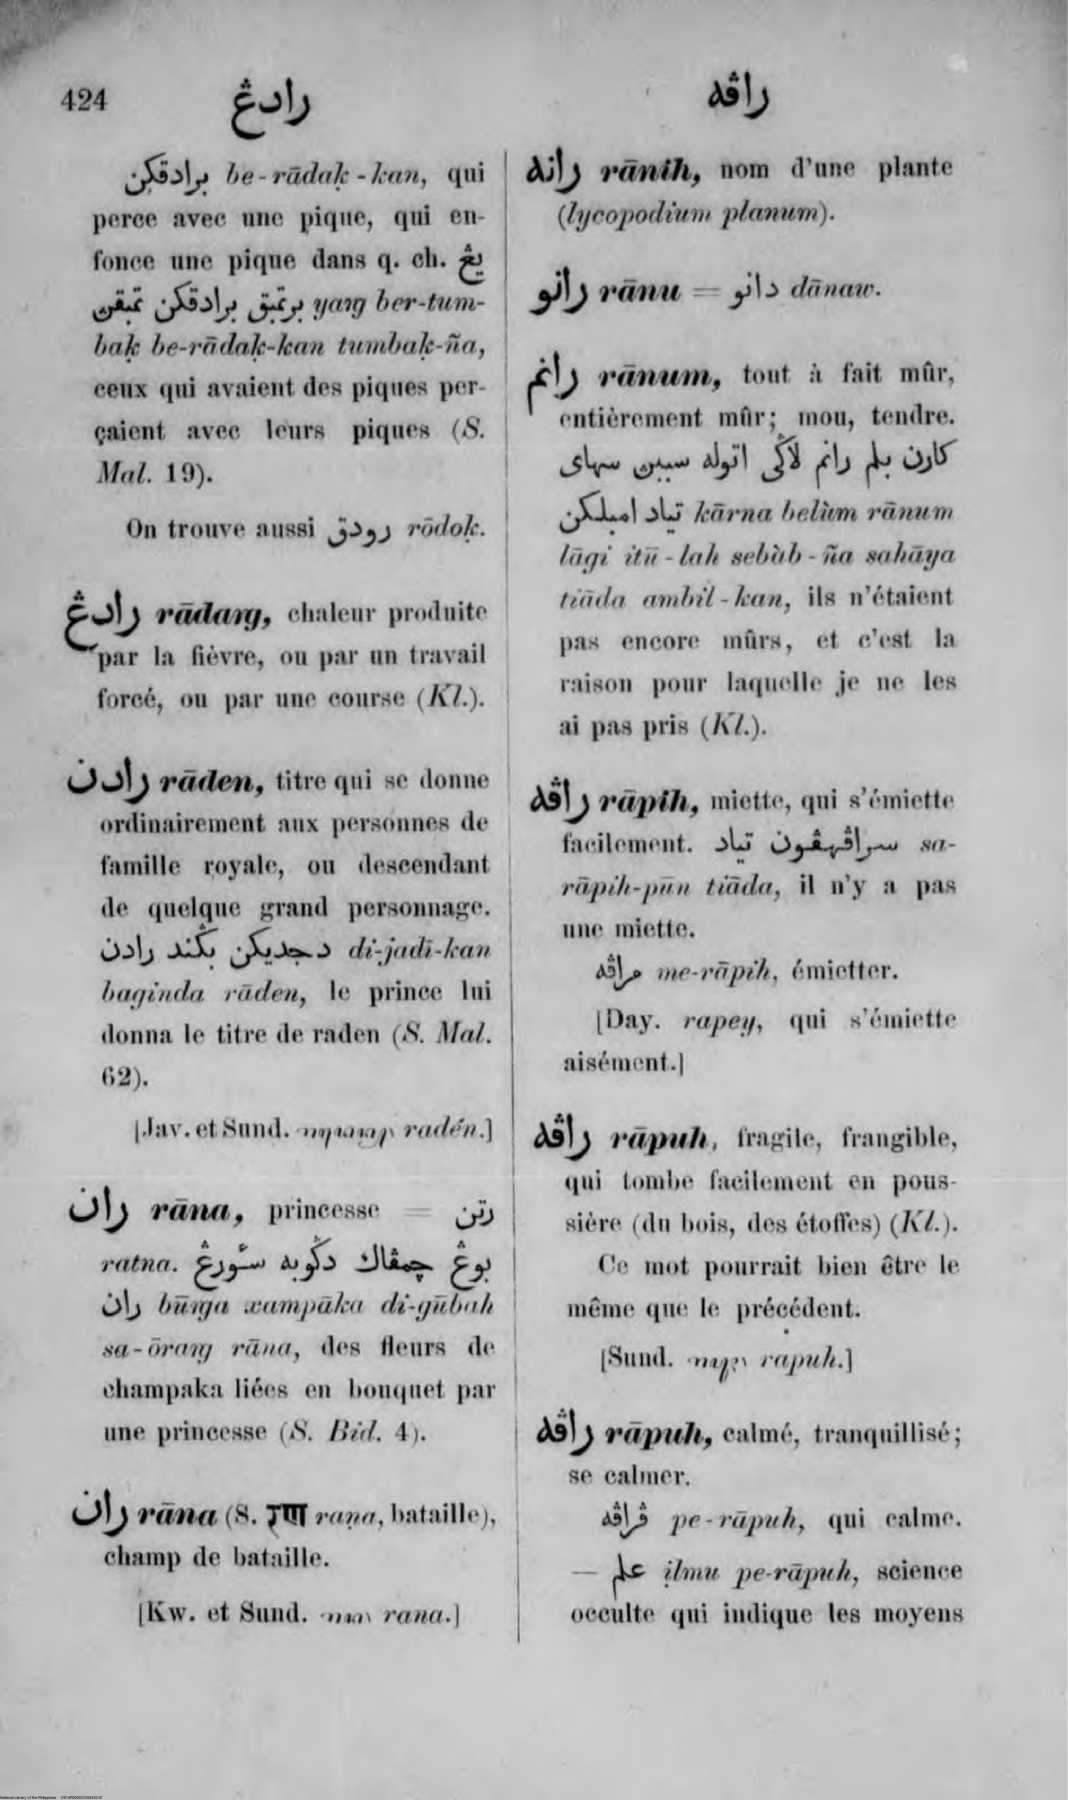 424
رادڠ
راڤه
برادقكن be-rādaḳ-kan, qui
perce avec une pique, qui en-
fonce une pique dans q. ch. يڠ
برتمبق برادقكن تمبقن yaŋ ber-tum-
baḳ be-rādaḳ-kan tumbaḳ-ña,
ceux qui avaient des piques per-
çaient avec leurs piques (S.
Mal. 19).
On trouve aussi رودق rōdoḳ.
رادڠ rādaŋ, chaleur produite
par la fièvre, ou par un travail
forcé, ou par une course (Kl.).
رادن rāden, titre qui se donne
ordinairement aux personnes de
famille royale, ou descendant
de quelque grand personnage.
دجديكن بڬند رادن di-jadī-kan
baginda rāden, le prince lui
donna le titre de raden (S. Mal.
62).
[Jav. et Sund. radén.]
ران rāna, princesse = رتن
ratna. بوڠ چمڤاك دڬوبه سٔورڠ
ران būŋa xampāka di-gūbah
sa-ōraŋ rāna, des fleurs de
champaka liées en bouquet par
une princesse (S. Bid. 4).
ران rāna (S. रण raṇa, bataille),
champ de bataille.
[Kw. et Sund. rana.]
رانه rānih, nom d'une plante
(lycopodium planum).
رانو rānu = دانو dānaw.
رانم rānum, tout à fait mûr,
entièrement mûr; mou, tendre.
كارن بلم رانم لاڬى اتوله سببن سهاى
تياد امبلكن kārna belùm rānum
lāgi itū-lah sebàb-ña sahāya
tiāda ambil-kan, ils n'étaient
pas encore mûrs, et c'est la
raison pour laquelle je ne les
ai pas pris (Kl.).
راڤه rāpih, miette, qui s'émiette
facilement. سراڤهڤون تياد sa-
rāpih-pūn tiāda, il n'y a pas
une miette.
مراڤه me-rāpih, émietter.
[Day. rapey, qui s'émiette
aisément.]
راڤه rāpuh, fragile, frangible,
qui tombe facilement en pous-
sière (du bois, des étoffes) (Kl.).
Ce mot pourrait bien être le
même que le précédent.
[Sund. rapuh.]
راڤه rāpuh, calmé, tranquillisé;
se calmer.
ڤراڤه pe-rāpuh, qui calme.
— علم ịlmu pe-rāpuh, science
occulte qui indique les moyens